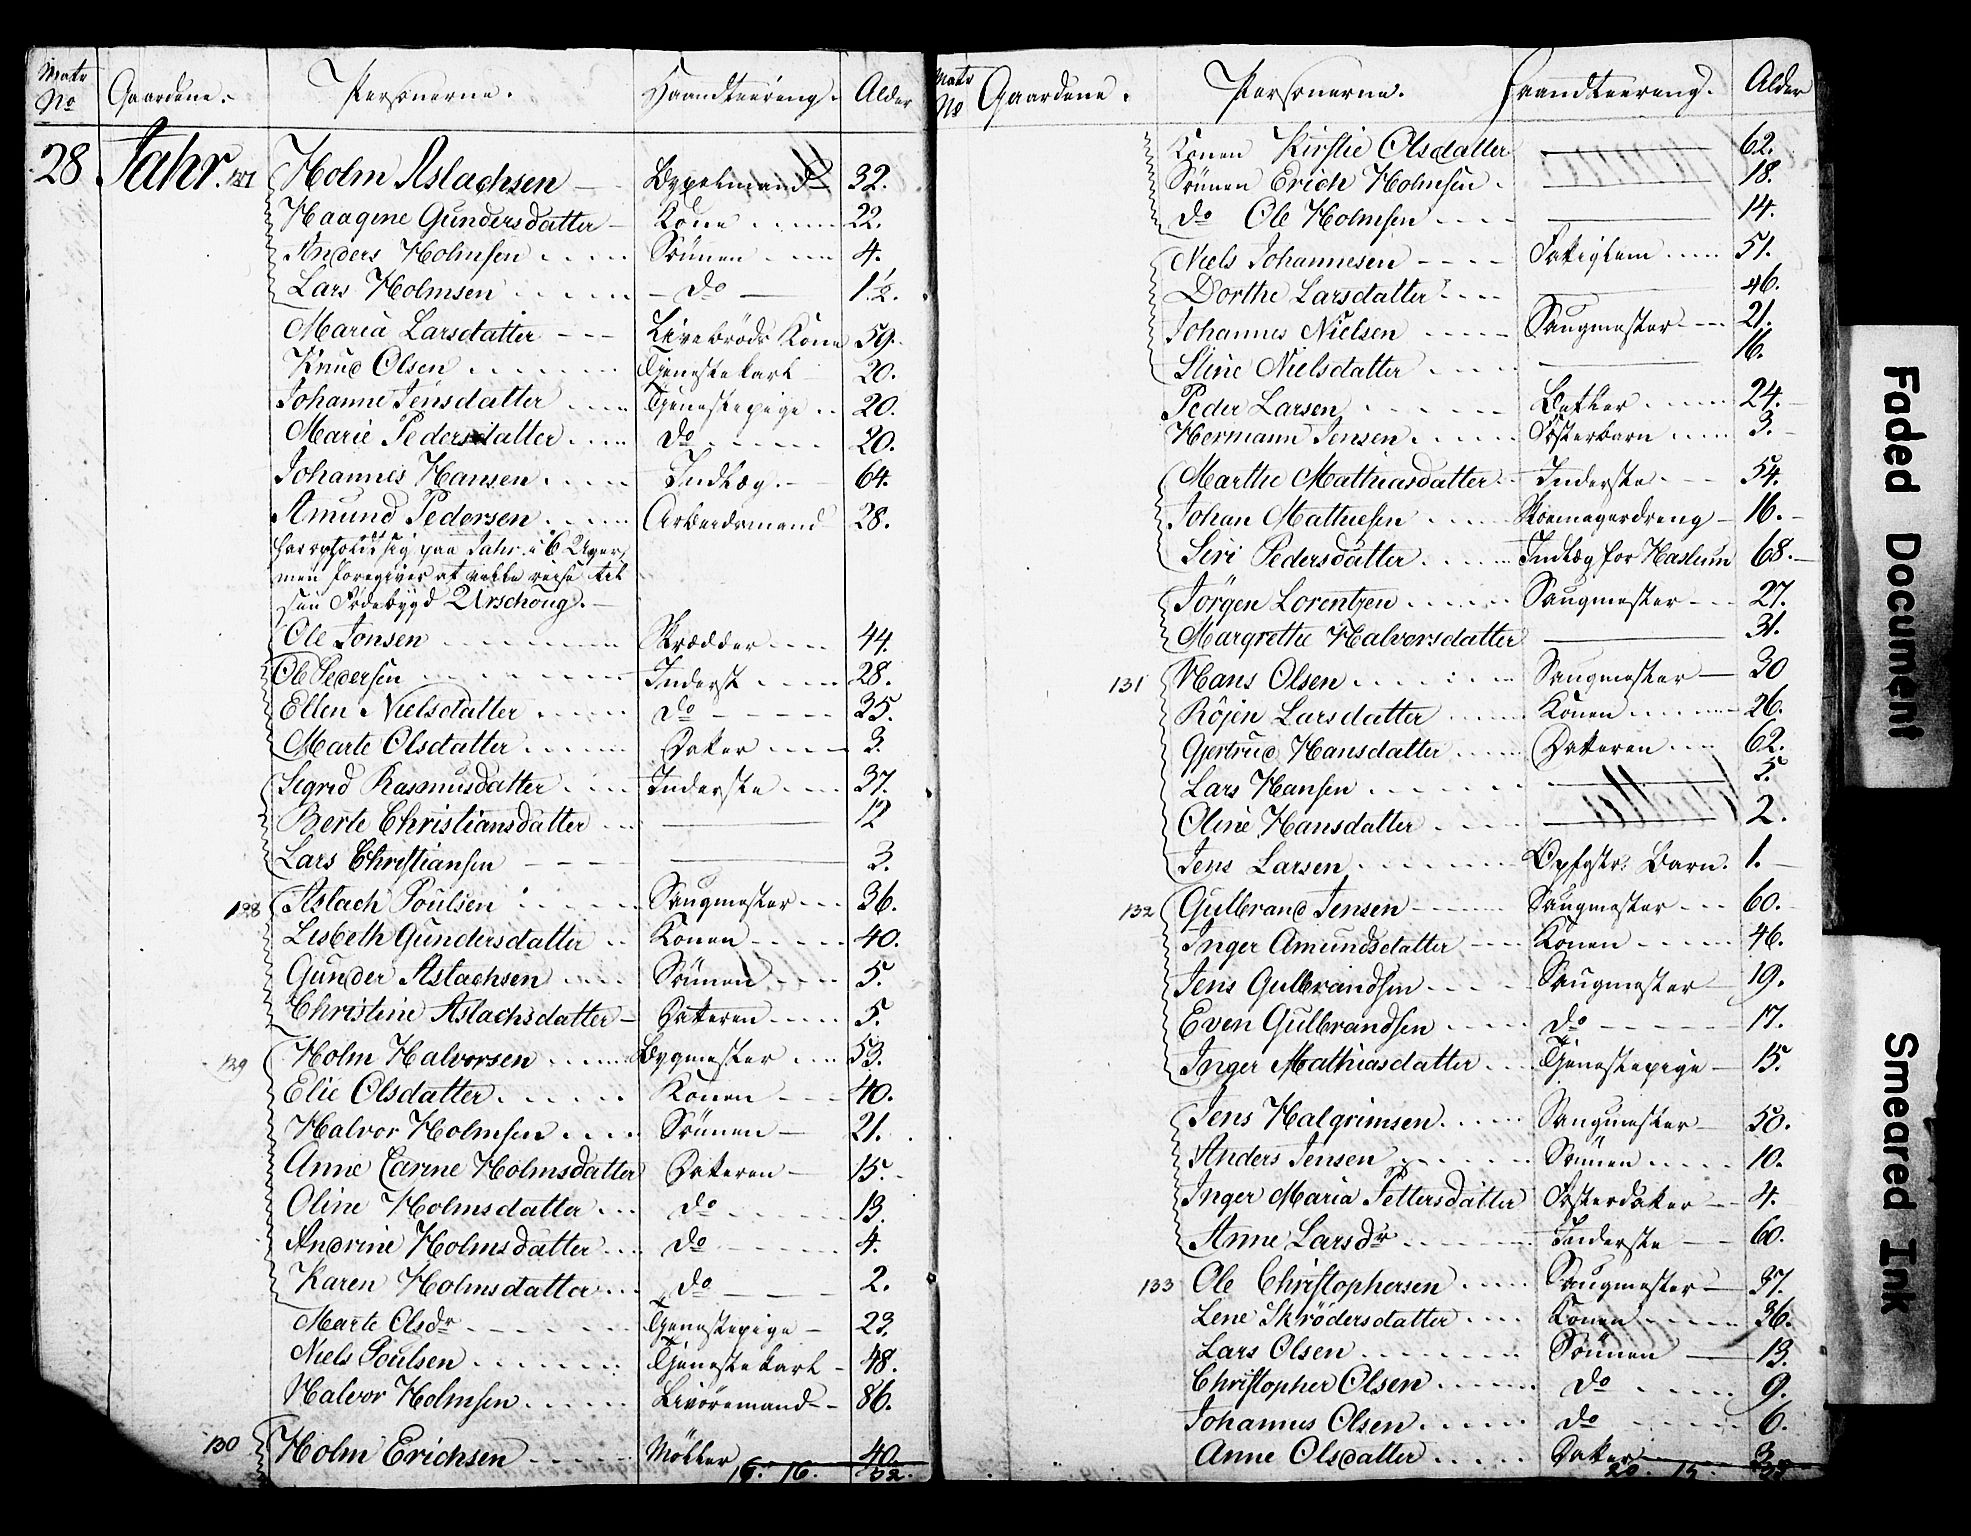 Matr No Gaardene. Personerne. Haandteering. Alder
28 Jahr. 127 Holm Aslachsen Bygselmand 32.
Haagine Gundersdatter Kone 22.
Anders Holmsen Sönnen 4.
Lars Holmsen do 1½.
Maria Larsdatter Livebröds Kone 59.
Knud Olsen Tjenestekarl 20.
Johanne Jensdatter Tjenestepige 20.
Marie Pedersdatter do 20.
Johannes Hansen Indlæg. 64.
Amund Pedersen Arbeidsmand 28.
har opholdt sig paa Jahr i 6 Uger,
men foregiver at ville reise til
sin Födebygd Urschoug.
Ole Jonsen Skrædder 44.
Ole Pedersen Inderst 28.
Ellen Nielsdatter do 35.
Marte Olsdatter Datter 3.
Sigrid Rasmusdatter Inderste 37.
Berte Christiansdatter 12
Lars Christiansen 3.
128 Aslach Poulsen Saugmester 36.
Lisbeth Gundersdatter Konen 40.
Gunder Aslachsen Sönnen 5.
Christine Aslachsdatter Datteren 5.
129 Holm Halvorsen Bygmester 53.
Elie Olsdatter Konen 40.
Halvor Holmsen Sönnen 21.
Anne Carine Holmsdatter Datteren 15.
Oline Holmsdatter do 13.
Andrine Holmsdatter do 4.
Karen Holmsdatter do 2.
Marte Olsdr Tjenestepige 23.
Niels Poulsen Tjenestekarl 48.
Halvor Holmsen Livöremand 86.
130 Holm Erichsen Möller 40.
16. 16. 32.
Matr No Gaardene. Personerne. Haandteering. Alder
Konen Kirstie Olsdatter 62.
Sönnen Erich Holmsen 18.
do Ole Holmsen 14.
Niels Johannesen Fattiglem 51.
Dorthe Larsdatter 46.
Johannes Nielsen Saugmester 21.
Stine Nielsdatter 16.
Peder Larsen 24.
Hermann Jensen Fosterbarn 3.
Marthe Mathiasdatter Inderste 54.
Johan Mathiesen Skomagerdreng 16.
Siri Pedersdatter Indlæg for Haslum 68.
Jörgen Lorentzen Saugmester 27.
Margrethe Halvorsdatter 31.
131 Hans Olsen Saugmester 30
Röjen Larsdatter Konen 26.
Gjertrud Hansdatter Datteren 62.
Lars Hansen 5.
Oline Hansdatter 2.
Jens Larsen Opfostr: Barn. 1.
132 Gulbrand Jensen Saugmester 60.
Inger Amundsdatter Konen 46.
Jens Gulbrandsen Saugmester 19.
Even Gulbrandsen do 17.
Inger Mathiasdatter Tjenestepige 15.
Jens Halgrimsen Saugmester 50.
Anders Jensen Sönnen 10.
Inger Maria Pettersdatter Fosterdatter 4.
Anne Larsdr Inderste 60.
133 Ole Christophersen Saugmester 37.
Lene Skrödersdatter Konen 36.
Lars Olsen Sönnen 13.
Christopher Olsen do 9.
Johannes Olsen do 6.
Anne Olsdatter Datter 3.
20. 15.
Faded Document
Smeared Ink